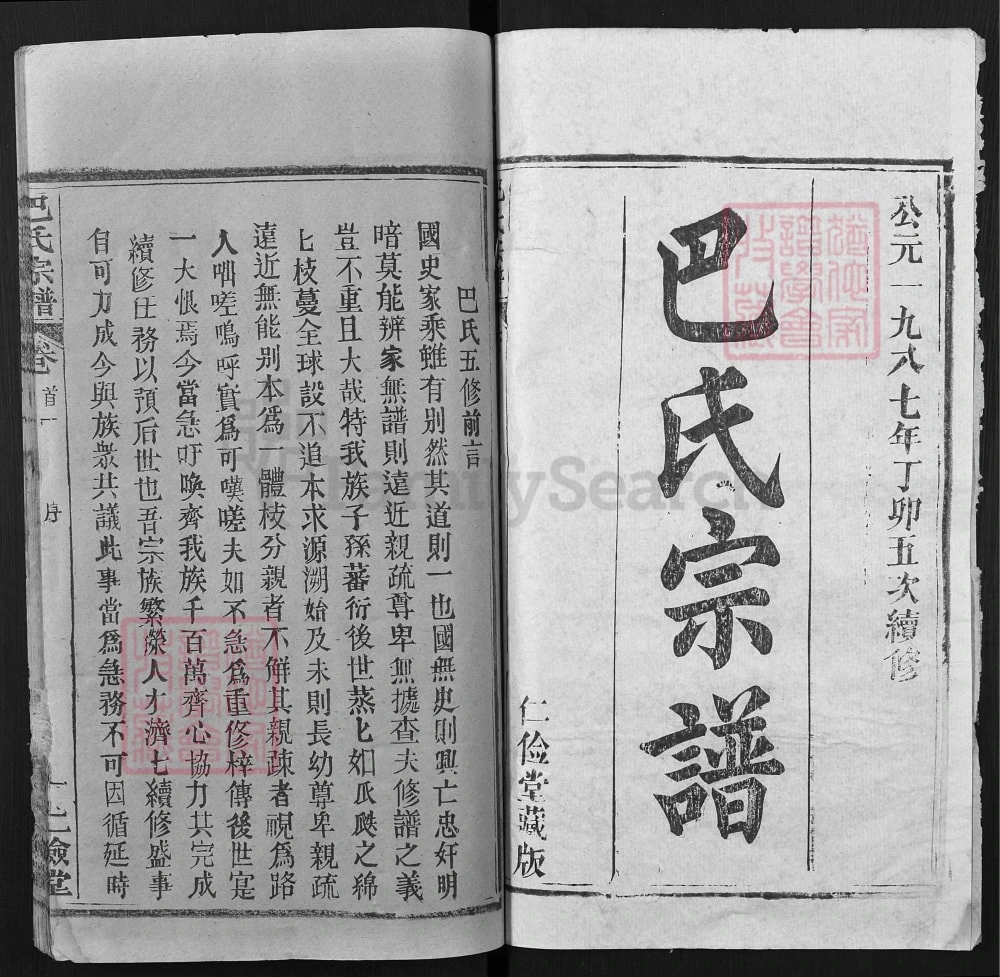 公元一九八七年丁卯五次續修
巴氏宗譜
仁俭堂藏版
巴氏五修前言
國史家乘雖有别然其道則一也國無史則興亡忠奸明
暗莫能辨家無譜則遠近親疏尊卑無據查夫修譜之義
豈不重且大哉特我族子孫蕃衍後世蒸匕如瓜瓞之綿
匕枝蔓全球設不追本求源溯始及末則長幼尊卑親疏
遠近無能别本為一體枝分親者不解其親疎者視為路
人咄嗟嗚呼實為可嘆嗟夫如不急為重修梓傳後世寔
一大恨焉今當急吁喚齊我族千百萬齊心協力共完成
續修任務以預后世也吾宗族繁榮人才濟匕續修盛事
自可力成今與族衆共議此事當為急務不可因循延時
巴氏宗譜
卷首一
序
一
仁儉堂
FamilySearch